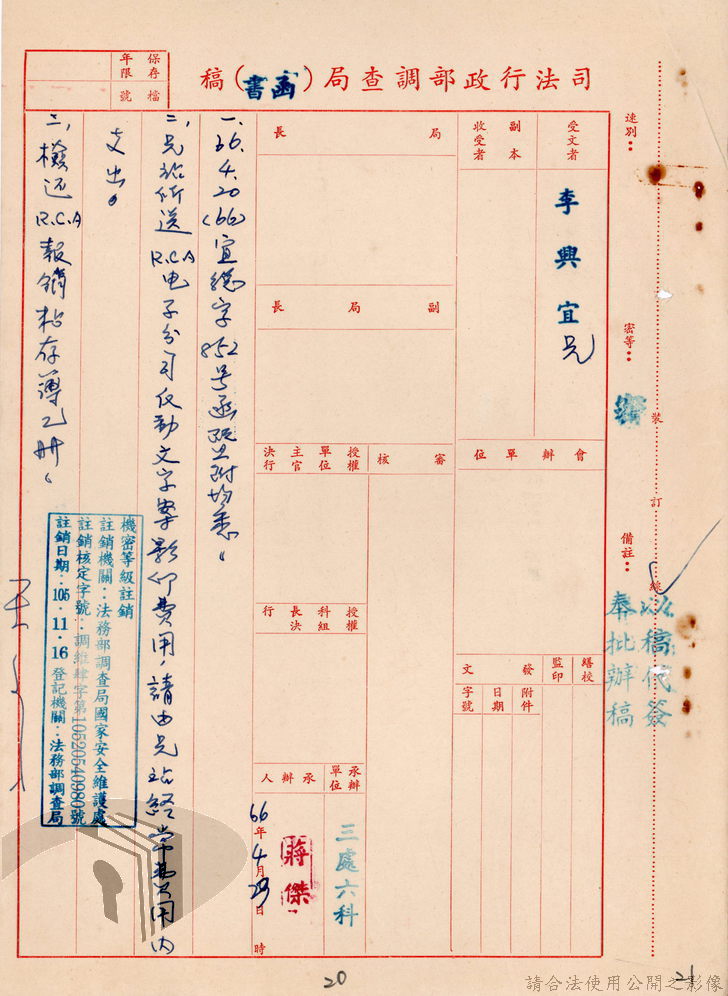 司法行政部調查局(函書)稿
保存年限
檔號
速別：
密等：密
備註：
裝訂線
以稿代簽
奉批辦稿
受文者
李興宜兄
副本收受者
會辦單位
繕校
監印
發文
附件
日期
字號
局長
副局長
審核
授權單位主官決行
授權科組長決行
承辦單位
三處六科
承辦人
蔣傑
66年4月29日時
一、66.4.20(66)宜總字852号函既附均悉。
二、兄站所送R.C.A电子公司反動文字案影印費用，請由兄站經常費用內
支出。
三、檢还R.C.A報銷粘存簿乙册。
機密等級註銷
註銷機關：法務部調查局國家安全維護處
註銷核定字號：調維肆字第10520540980號
註銷日期：105.11.16 登記機關：法務部調查局
20
21
請合法使用公開之影像